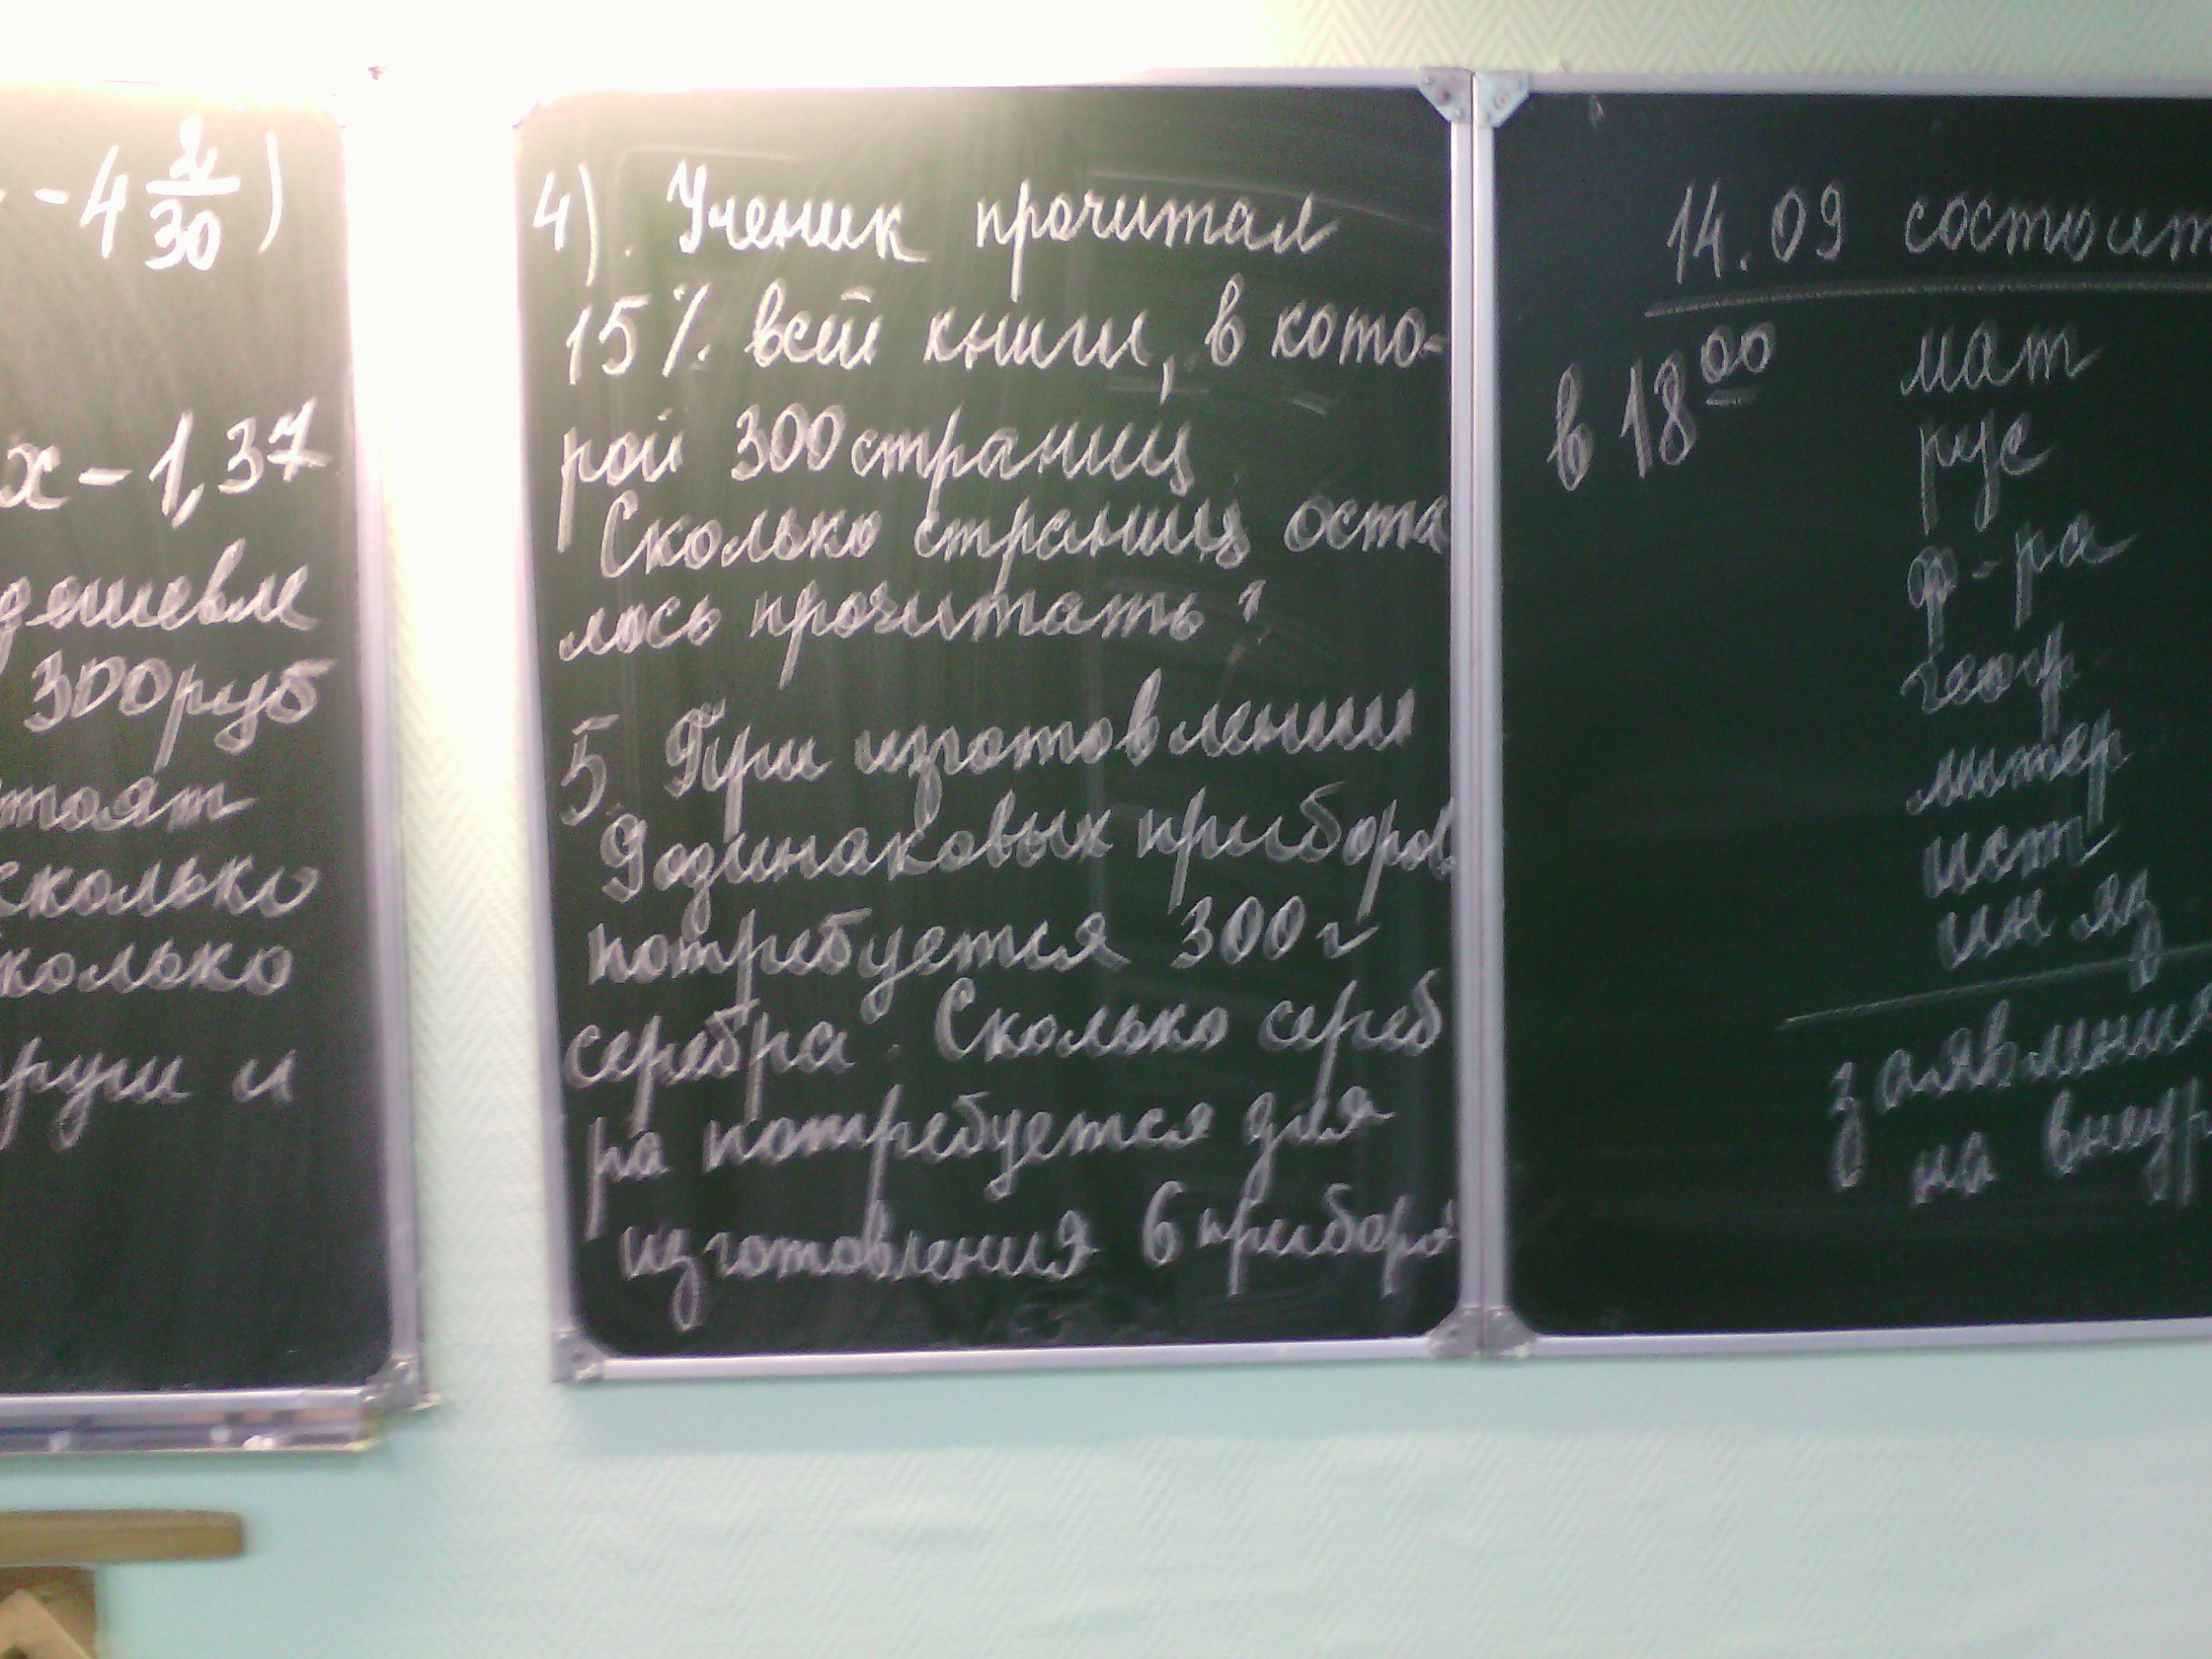 - 4 2/30 )
x - 1,37
дешевле
300 руб
стоят
сколько
сколько
груши и
4). Ученик прочитал
15% всей книги, в кото-
рой 300 страниц
Сколько страниц оста
лось прочитать?
5. При изготовлении
9 одинаковых приборов
потребуется 300 г
серебра. Сколько сереб
ра потребуется для
изготовления 6 приборо
14.09 состоит
в 18 00 мат
рус
ф-ра
геогр
литер
ист
ин яз
заявления
на внеур